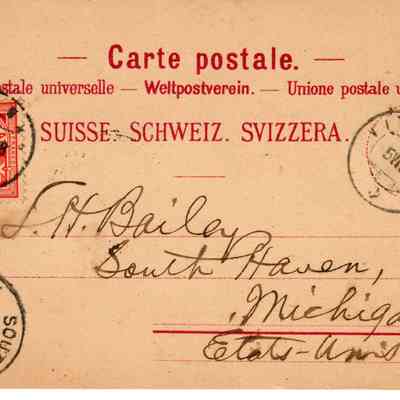 — Carte postale. —
stale universelle — Weltpostverein. — Unione postale u
SUISSE. SCHWEIZ. SVIZZERA.
L. H. Bailey
South Haven,
Michiga
Etats-Unis